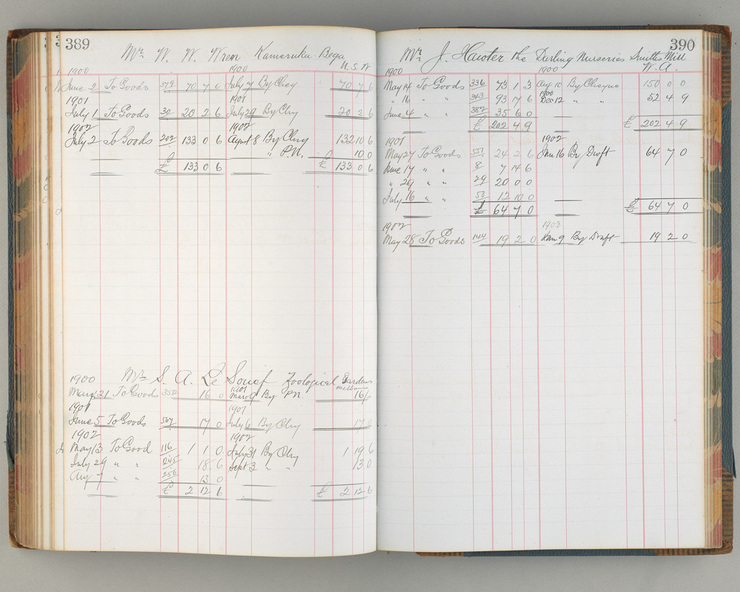 389
Mr W. W. Wren Kameruka Bega
N.S.W
1900 1900
June 2 To Goods 70 7 6 July 7 By Chq 70 7 6
1901 1901
July 1 To Goods 30 20 2 6 July 29 By Chq 20 2 6
1902 1902
July 2 To Goods 202 133 0 6 August 8 By Chq 132 10 6
" P.N. 10 0
£ 133 0 6 £ 133 0 6
1900 Mr S. A. Le Souef Zoological Gardens
May 31 To Good 16 0 By P.N 16/
1901 1901
June 5 To Goods 17 0 July 6 By Chq 17 0
1902 1902
May 13 To Good 116 1 1 0 July 31 By Chq 1 19 6
July 29 " " 18 6 Sept 3 " " 13 0
Aug 7 " " 13 0
£ 2 12 6 £ 2 12 6
390
Mr J. Hawter the Darling Nurseries Smiths Mill
W. A.
1900 1900
May 14 To Goods 336 73 1 3 Aug By Cheque 150 0 0
" 16 " " 343 93 17 6 Dec 12 " " 52 4 9
June 4 " " 35 6 0
£ 202 4 9 £ 202 4 9
1901 1902
May 27 To Goods 24 2 6 Jan 16 By Draft 64 7 0
June 14 " " 8 7 14 6
" 29 " " 29 20 0 0
July 16 " " 53 12 10 0
£ 64 7 0 £ 64 7 0
1902 1903
May 28 To Goods 144 19 2 0 Jan 9 By Draft 19 2 0